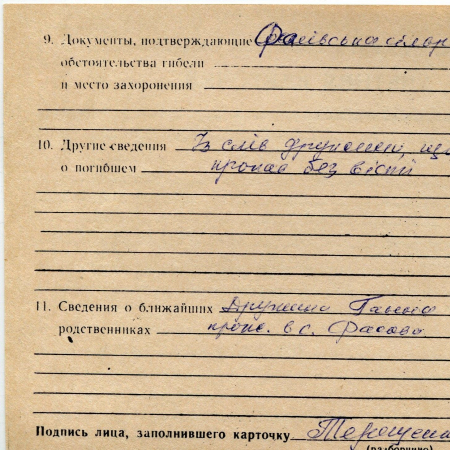 9. Документы, подтверждающие
обстоятельства гибели
и место захоронения
10. Другие сведения Із слів дружини, що
о погибшем пропав без вісті
11. Сведения о ближайших Дружина Ганна
родственниках прож. в с. Фасова
Подпись лица, заполнившего карточку
(разборчиво)